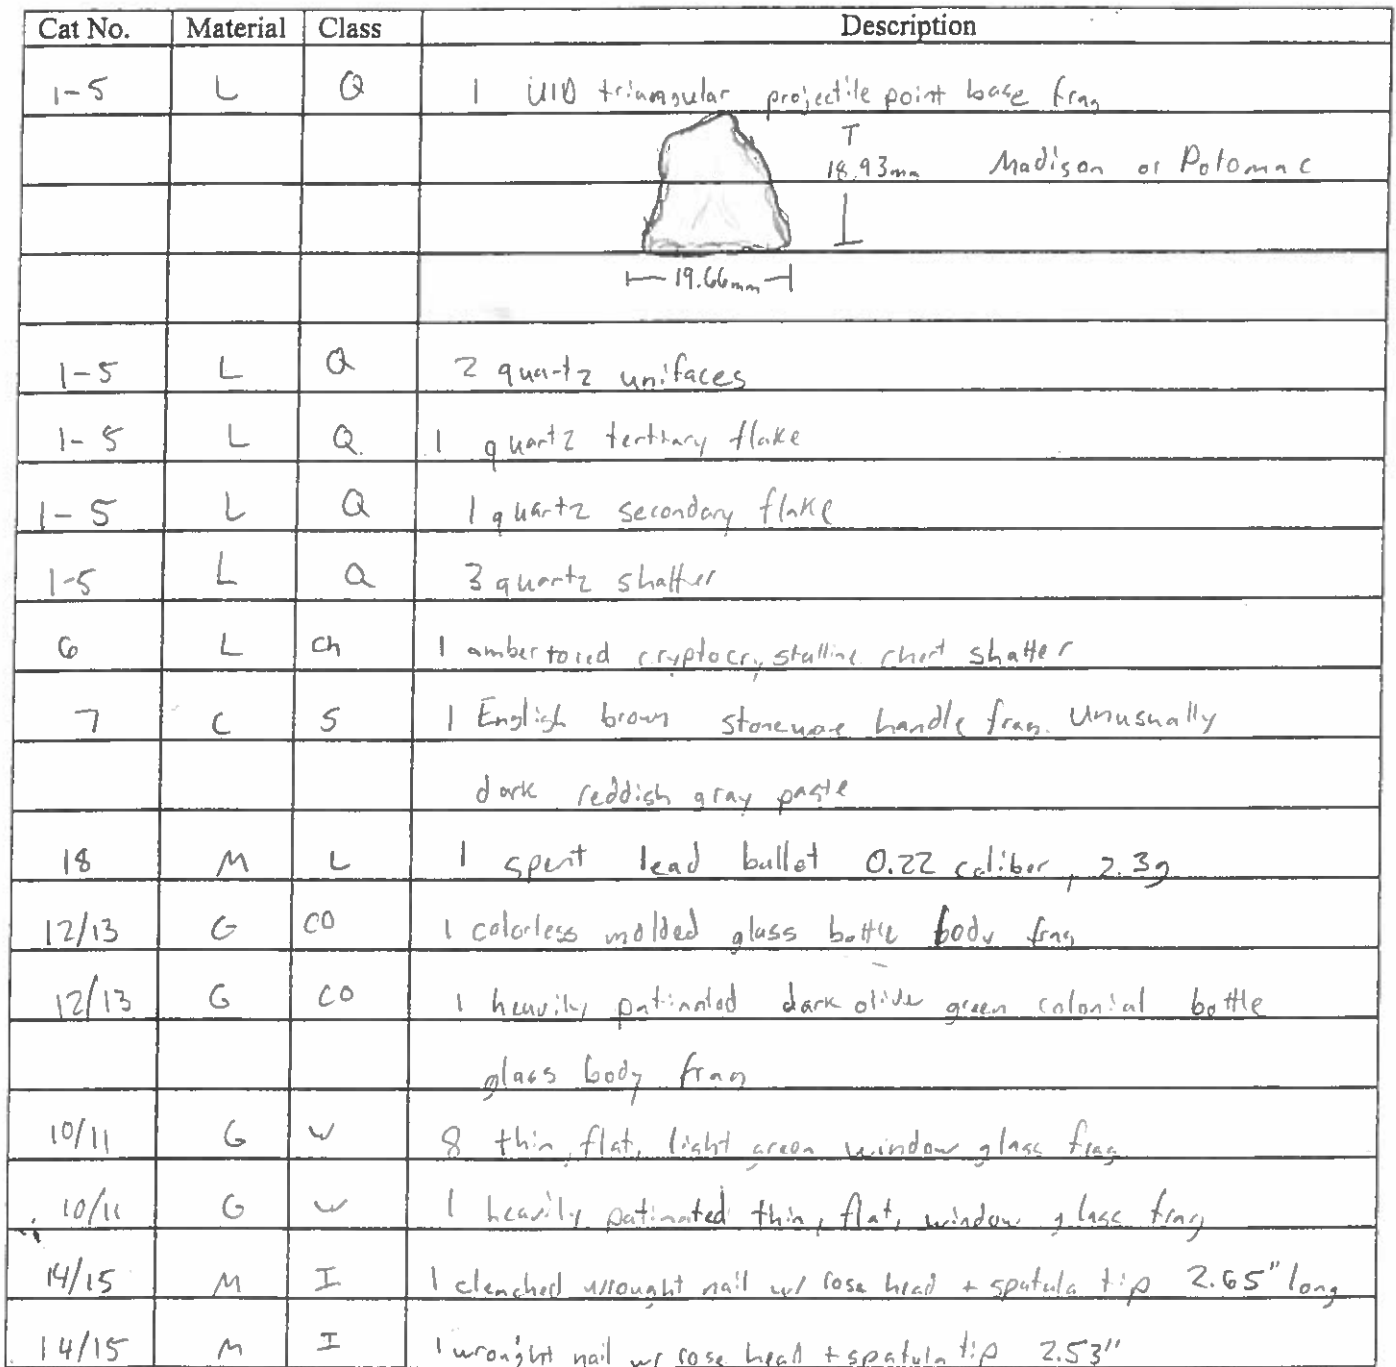 Cat No. Material Class Description
1-5 L Q 1 UID triangular projectile point base frag
T
18.93mm Madison or Potomac
19.66mm
1-5 L Q 2 quartz unifaces
1-5 L Q 1 quartz tertiary flake
1-5 L Q 1 quartz secondary flake
1-5 L Q 3 quartz shatter
6 L Ch 1 amber cryptocrystalline chert shatter
7 C S 1 English brown stoneware handle frag. Unusually
dark reddish gray paste
18 M L 1 spent lead bullet 0.22 caliber, 2.3g
12/13 G CO 1 colorless molded glass bottle body frag
12/13 G CO 1 heavily patinated dark olive green colonial bottle
glass body frag
10/11 G W 8 thin, flat, light green window glass frag
10/11 G W 1 heavily patinated thin, flat, window glass frag
14/15 M I 1 clenched wrought nail w/ rose head + spatula tip 2.65" long
14/15 M I 1 wrought nail w/ rose head + spatula tip 2.53"